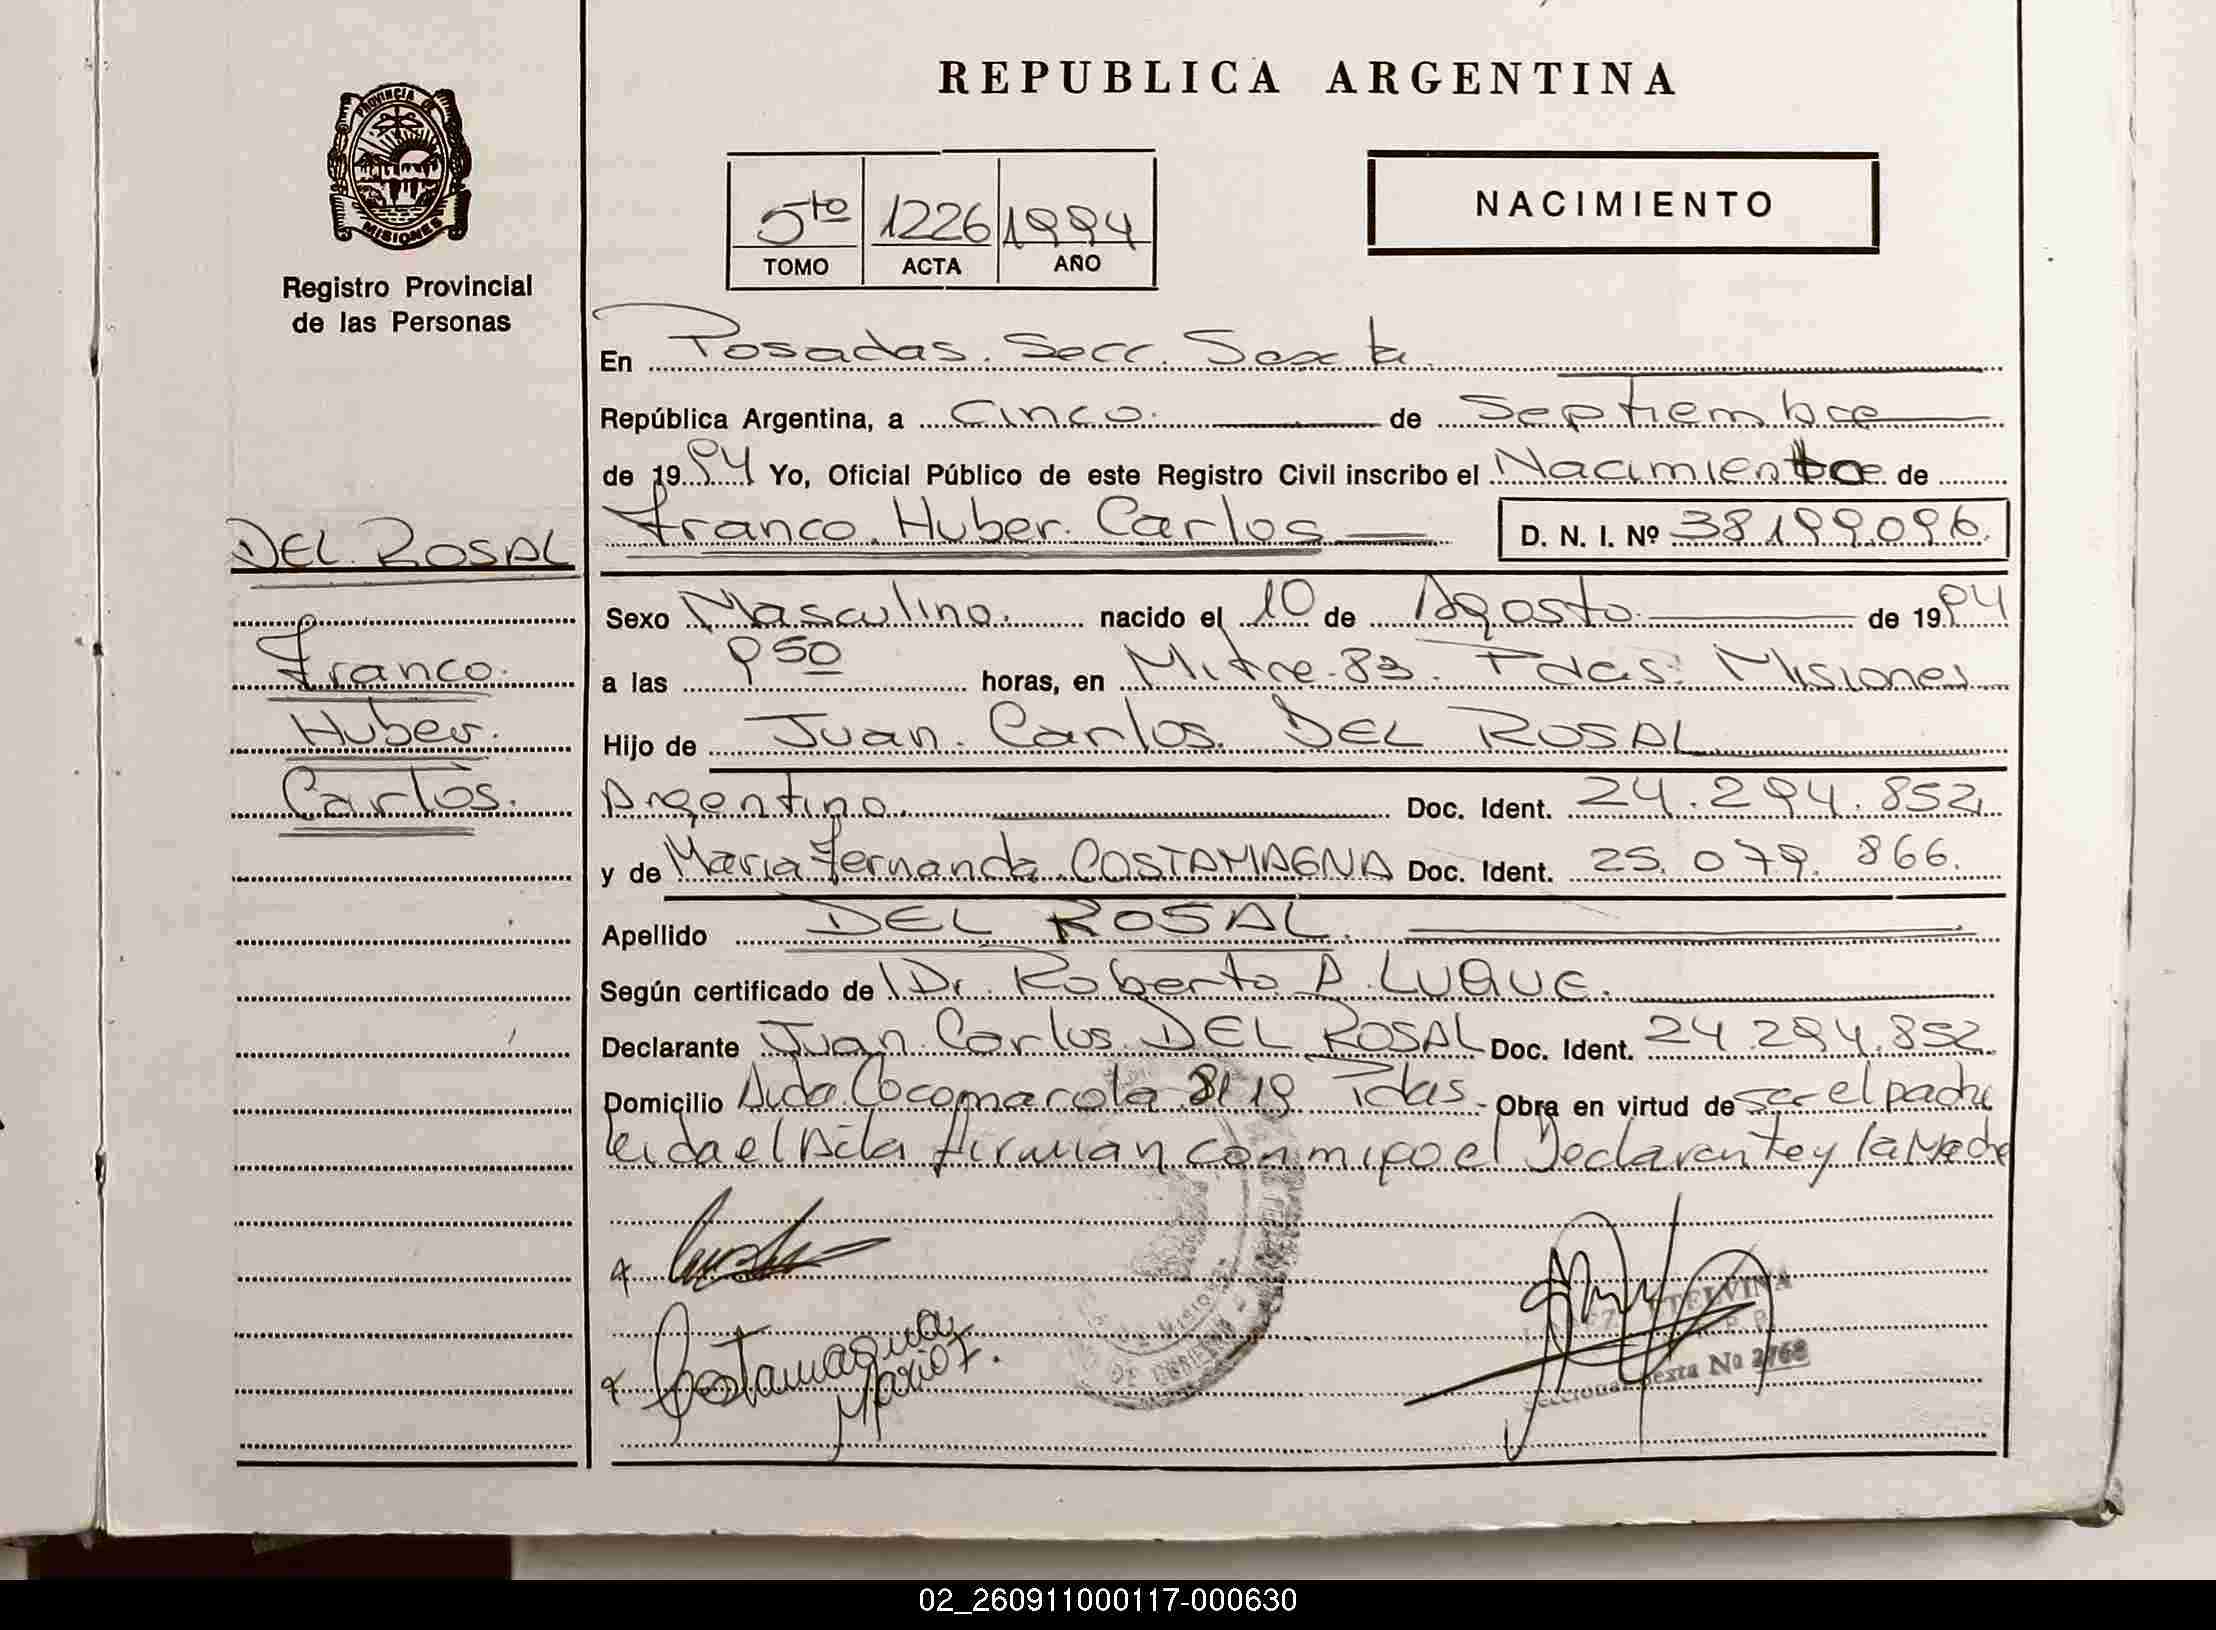 REPUBLICA ARGENTINA
PROVINCIA DE
MISIONES
Registro Provincial
de las Personas
5to 1226 1994
TOMO ACTA AÑO
NACIMIENTO
En Posadas. Secc. Sexta.
República Argentina, a Cinco. de Septiembre
de 1994 Yo, Oficial Público de este Registro Civil inscribo el Nacimiento de
Franco. Huber. Carlos D. N. I. Nº 38.199.096.
DEL ROSAL
Franco.
Huber.
Carlos.
Sexo Masculino. nacido el 10 de Agosto de 1994
a las 950 horas, en Mitre. 83. Pdas. Misiones
Hijo de Juan. Carlos. DEL ROSAL
Argentino. Doc. Ident. 24.294.852
y de Maria Fernanda COSTAMAGNA Doc. Ident. 25.079.866.
Apellido DEL ROSAL.
Según certificado de Dr. Roberto A. LUQUE.
Declarante Juan. Carlos. DEL ROSAL Doc. Ident. 24.294.852
Domicilio Avda. Cocomarola 8119 Pdas. Obra en virtud de ser el padre
leida el Acta firman conmigo el Declarante y la Madre
Costamagna
Maria F.
ETELVINA
Seccional Sexta Nº 2768
02_260911000117-000630